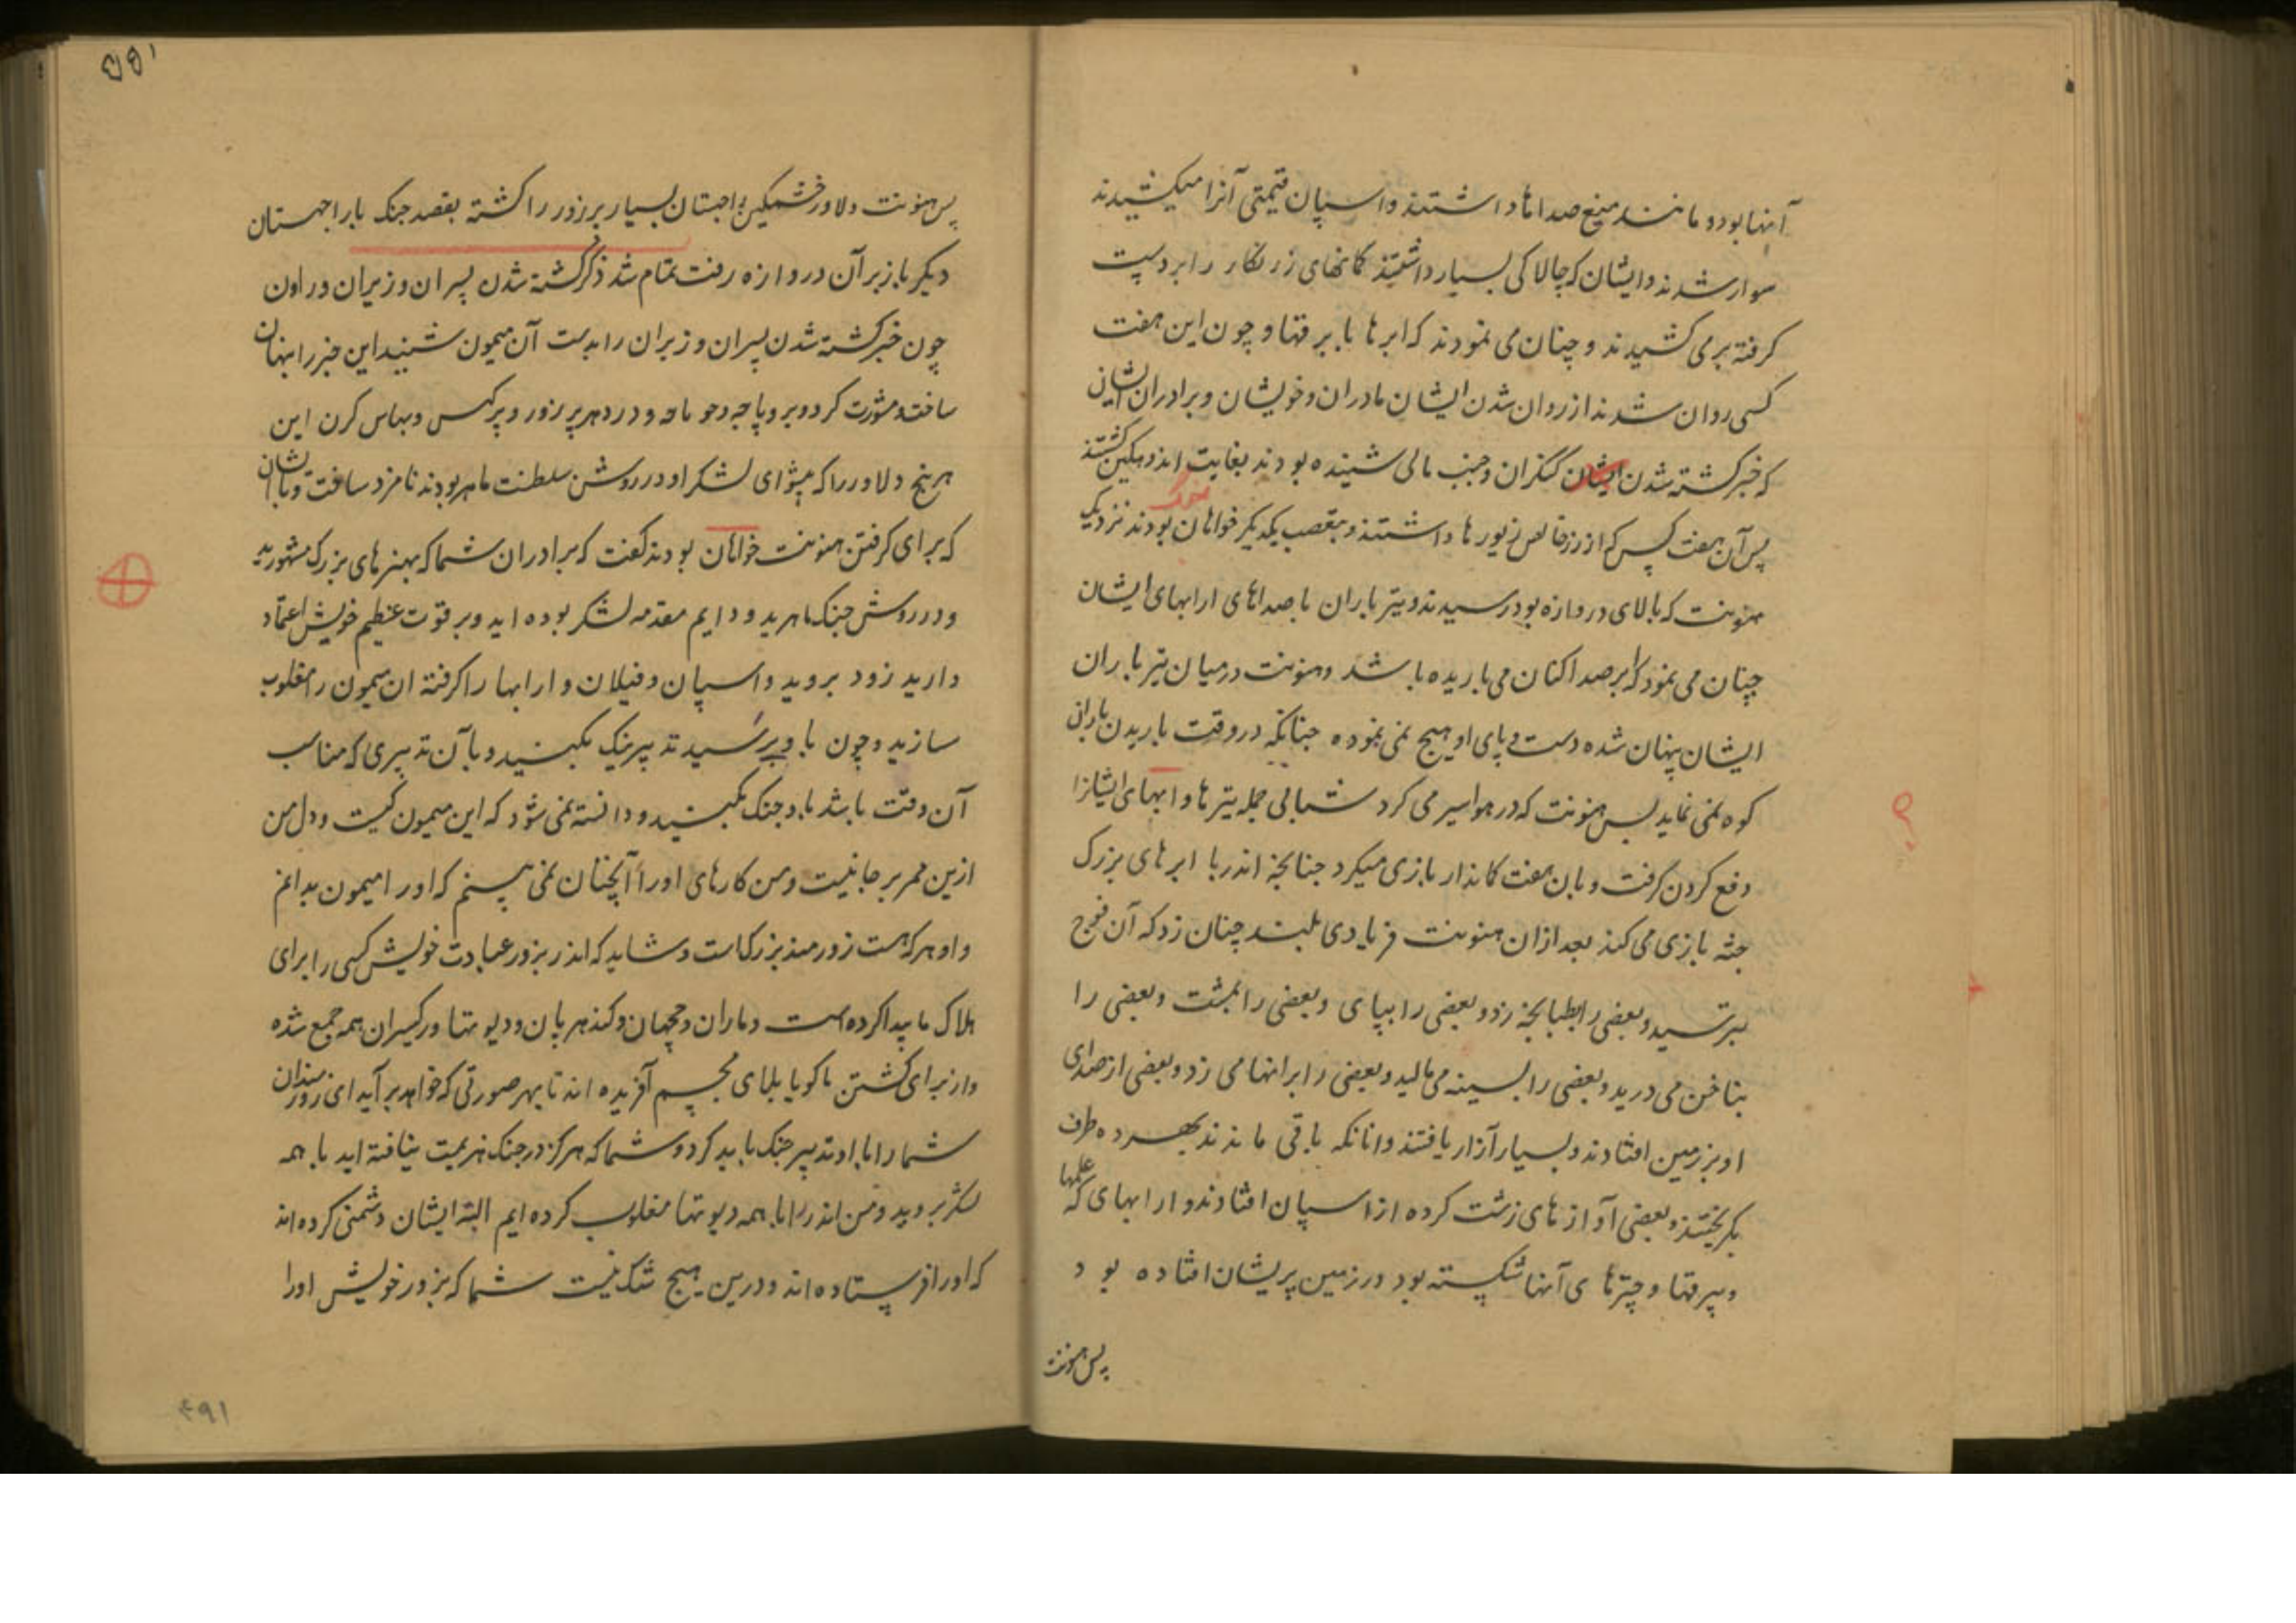 آنها بود و مانند میغ صداها داشتند و اسپان قیمتی آنرا میکشیدند
سوار شدند و ایشان که چالاکی بسیار داشتند کمانهای زرنکار را بر دست
کرفته برمی کشیدند و چنان می نمودند که ابرها با برقها و چون این هفت
کسی روان شدند از روان شدن ایشان مادران و خویشان و برادران ایشان
که خبر کشته شدن ایشان کنکران و جنب مالی شنیده بودند بغایت اندوهکین کشتند
پس آن هفت کس که از زر خالص زیورها داشتند و بتعصب یکدیکر خواهان جنک بودند نزدیک
هنونت که بالای دروازه بود رسیدند و تیر باران با صداهای ارابهای ایشان
چنان می نمود که ابر صدا کنان می باریده باشد و هنونت در میان تیر باران
ایشان پنهان شده دست و پای او هیچ نمی نموده چنانکه در وقت باریدن باران
کوه نمی نماید پس هنونت که در هوا سیر می کرد شتابی جمله تیرها و ابهای ایشانرا
دفع کردن کرفت و بان هفت کماندار بازی میکرد چنانچه اندر با ابرهای بزرک
جثه بازی می کند بعد ازان هنونت فریادی بلند چنان زد که آن فوج
بترسید و بعضی را بطبانچه زد و بعضی را بپای و بعضی را بمشت و بعضی را
بناخن می درید و بعضی را بسینه می مالید و بعضی را برانها می زد و بعضی از صدای
او بر زمین افتادند و بسیار آزار یافتند و انانکه باقی ماندند بهر ده طرف
بکریختند و بعضی آوازهای زشت کرده از اسپان افتادند و ارابهای که علمها
و بیرقها و چترهای آنها شکسته بود در زمین پریشان افتاده بود
پس هنونت
پس هنونت دلاور خشمکین راجهستان بسیار پرزور را کشته بقصد جنک با راجهستان
دیکر باز بر آن دروازه رفت تمام شد ذکر کشته شدن پسران وزیران و راون
چون خبر کشته شدن پسران وزیران را بدست آن میمون شنید این خبر را پنهان
ساخت و مشورت کرد و بروپاچه و جوماحه و دردهر پرزور و پرکس و بهاس کرن این
هر پنج دلاور را که پیشوای لشکر او در روش سلطنت ماهر بودند نامزد ساخت و با ایشان
که برای کرفتن هنونت خواهان بودند کفت که برادران شما که بهنرهای بزرک مشهورید
و در روش جنک ماهرید و دایم مقدمه لشکر بوده اید و بر قوت عظیم خویش اعتماد
دارید زود بروید و اسپان و فیلان و ارابها را کرفته ان میمون را مغلوب
سازید و چون باو برسید تدبیر نیک بکنید و بآن تدبیری که مناسب
آن وقت باشد باو جنک بکنید و دانسته نمی شود که این میمون کیست و دل من
ازین ممر بر جا نیست و من کارهای او را آنچنان نمی بینم که او را میمون بدانم
و او هر که هست زورمند بزرکاست و شاید که اندر بزور عبادت خویش کسی را برای
هلاک ما پیدا کرده است و ماران و جچهان و کندهربان و دیوتها و رکیسران همه جمع شده
و از برای کشتن ما کویا بلای مجسم آفریده اند تا بهر صورتی که خواهد بر آید ای زورمندان
شما را با او تدبیر جنک باید کرد و شما که هرکز در جنک هزیمت نیافته اید با همه
لشکر بروید و من اندر را با همه دیوتها مغلوب کرده ایم البته ایشان دشمنی کرده اند
که او را فرستاده اند و درین هیچ شک نیست شما که بزور خویش او را
۲۹۱